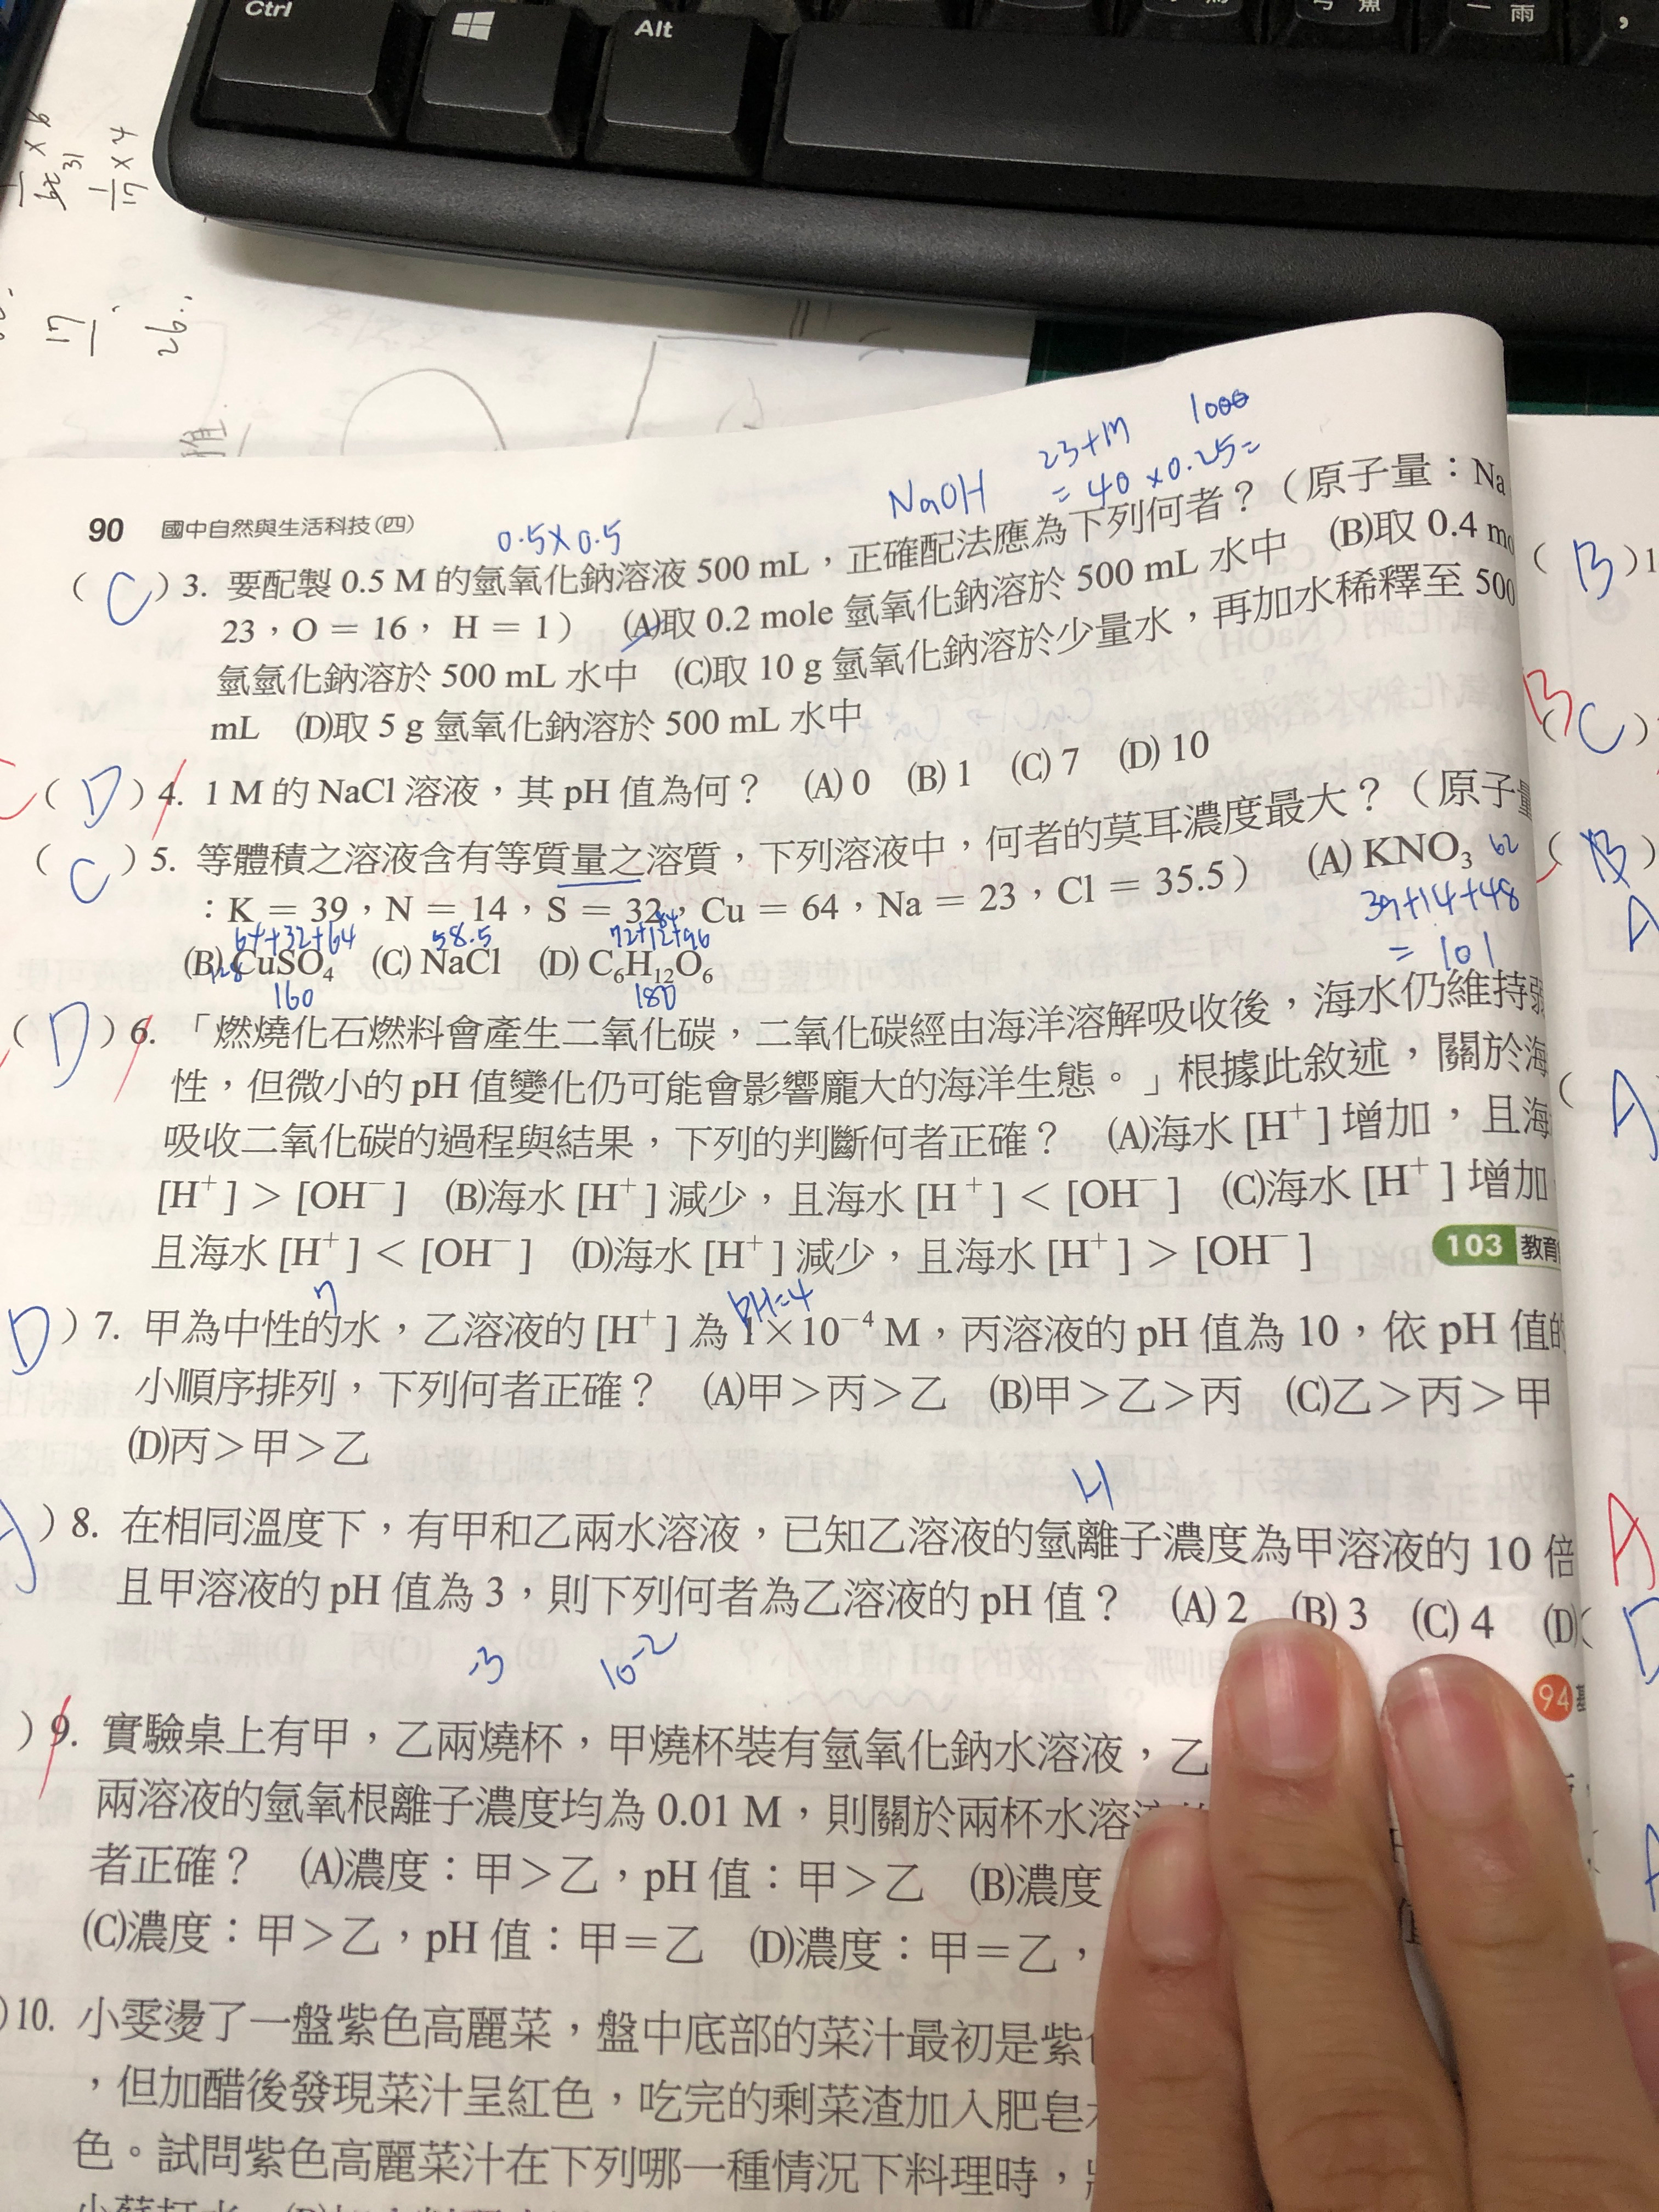 Ctrl
Alt
雨
1/17 × 4
17
26.
NaOH
23+17
1000
= 40 × 0.25 =
90 國中自然與生活科技(四)
0.5×0.5
( C ) 3. 要配製 0.5 M 的氫氧化鈉溶液 500 mL，正確配法應為下列何者？（原子量：Na
23，O = 16， H = 1） (A)取 0.2 mole 氫氧化鈉溶於 500 mL 水中 (B)取 0.4 mo
氫氫化鈉溶於 500 mL 水中 (C)取 10 g 氫氧化鈉溶於少量水，再加水稀釋至 500
mL (D)取 5 g 氫氧化鈉溶於 500 mL 水中
C ( D ) 4. 1 M 的 NaCl 溶液，其 pH 值為何？ (A) 0 (B) 1 (C) 7 (D) 10
( C ) 5. 等體積之溶液含有等質量之溶質，下列溶液中，何者的莫耳濃度最大？（原子量
：K = 39，N = 14，S = 32，Cu = 64，Na = 23，Cl = 35.5） (A) KNO₃ 62
39+14+48
= 101
64+32+64 58.5 72+12+96
(B) CuSO₄ (C) NaCl (D) C₆H₁₂O₆
128 160 180
( D ) 6. 「燃燒化石燃料會產生二氧化碳，二氧化碳經由海洋溶解吸收後，海水仍維持弱
性，但微小的 pH 值變化仍可能會影響龐大的海洋生態。」根據此敘述，關於海
吸收二氧化碳的過程與結果，下列的判斷何者正確？ (A)海水 [H⁺] 增加，且海
[H⁺] > [OH⁻] (B)海水 [H⁺] 減少，且海水 [H⁺] < [OH⁻] (C)海水 [H⁺] 增加
且海水 [H⁺] < [OH⁻] (D)海水 [H⁺] 減少，且海水 [H⁺] > [OH⁻] 103 教育
7 pH=4
D ) 7. 甲為中性的水，乙溶液的 [H⁺] 為 1×10⁻⁴ M，丙溶液的 pH 值為 10，依 pH 值的
小順序排列，下列何者正確？ (A)甲＞丙＞乙 (B)甲＞乙＞丙 (C)乙＞丙＞甲
(D)丙＞甲＞乙
H
) 8. 在相同溫度下，有甲和乙兩水溶液，已知乙溶液的氫離子濃度為甲溶液的 10 倍
且甲溶液的 pH 值為 3，則下列何者為乙溶液的 pH 值？ (A) 2 (B) 3 (C) 4 (D)
-3 10⁻²
94
) 9. 實驗桌上有甲，乙兩燒杯，甲燒杯裝有氫氧化鈉水溶液，乙
兩溶液的氫氧根離子濃度均為 0.01 M，則關於兩杯水溶
者正確？ (A)濃度：甲＞乙，pH 值：甲＞乙 (B)濃度
(C)濃度：甲＞乙，pH 值：甲＝乙 (D)濃度：甲＝乙，
)10. 小雯燙了一盤紫色高麗菜，盤中底部的菜汁最初是紫
，但加醋後發現菜汁呈紅色，吃完的剩菜渣加入肥皂
色。試問紫色高麗菜汁在下列哪一種情況下料理時，
( B ) 1
B
( C )
( B )
A
( A
A
D